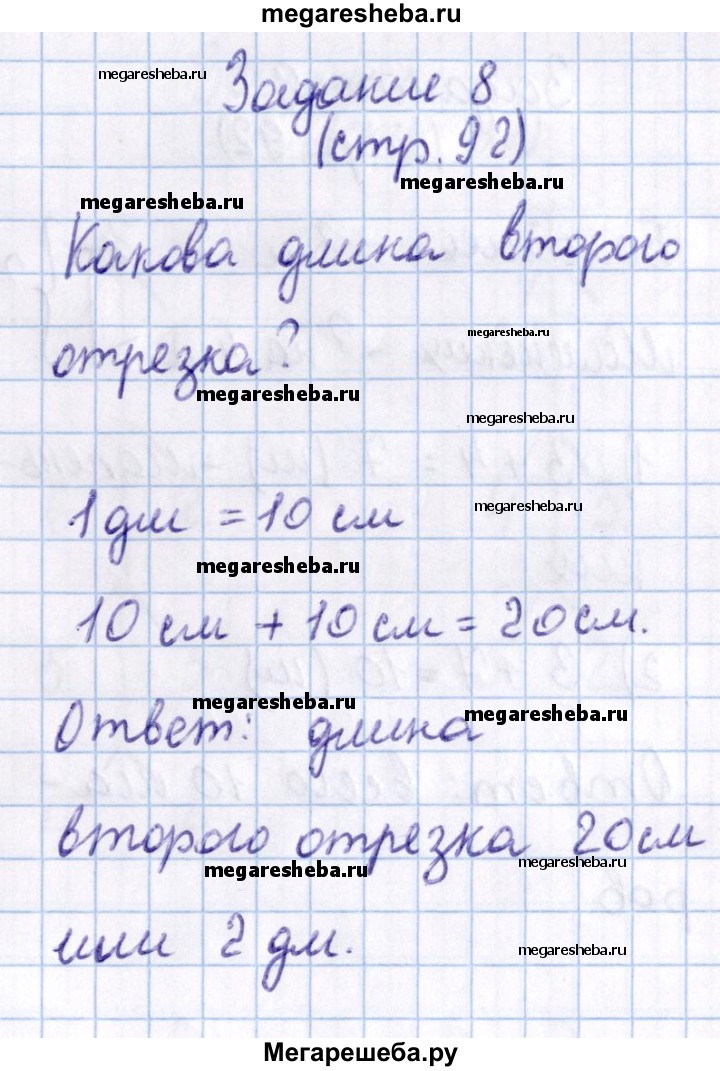 megaresheba.ru
megaresheba.ru
Задание 8
(стр. 92)
megaresheba.ru
megaresheba.ru
Какова длина второго
megaresheba.ru
отрезка?
megaresheba.ru
megaresheba.ru
megaresheba.ru
1 дм = 10 см
megaresheba.ru
10 см + 10 см = 20 см.
megaresheba.ru
megaresheba.ru
Ответ: длина
второго отрезка 20 см
megaresheba.ru
megaresheba.ru
или 2 дм.
megaresheba.ru
Мегарешеба.ру